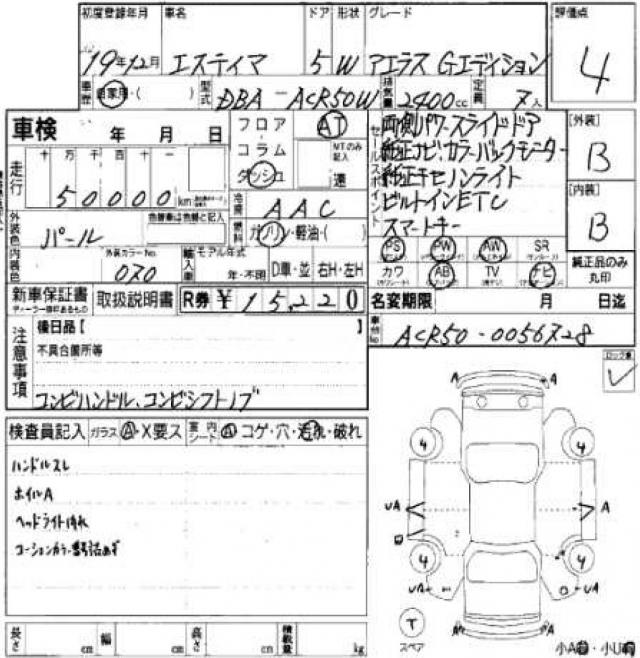 初度登録年月 車名 ドア 形状 グレード 評価点
19年12月 エスティマ 5 W アエラス Gエディション 4
車歴 自家用・( ) 型式 DBA-ACR50W 排気量 2400cc 定員 7人
車検 年 月 日 フロア AT
コラム MTのみ記入
ダッシュ 速
走行 十 万 千 百 十 一
50000 km
冷房 AAC
外装色 パール 色替車は元色と記入 燃料 ガソリン・軽油・( )
内装色 外装カラーNo. 070 輸入車 モデル年式 年・不明 D車・並 右H・左H
新車保証書 ディーラー捺印あるもの 取扱説明書 R券 ¥15,220
セールスポイント
両側パワースライドドア
純正ナビ、カラーバックモニター
純正キセノンライト
ビルトインETC
スマートキー
[外装] B
[内装] B
PS PW AW SR
カワ AB TV ナビ
純正品のみ丸印
名変期限 月 日迄
車台No ACR50-0056728
注意事項
後日品【 】
不具合箇所等
コンビハンドル、コンビシフトノブ
検査員記入 ガラス A・X要ス 室内シート A コゲ・穴・汚れ・破れ
ハンドルスレ
ホイルA
ヘッドライト汚れ
コーションカラー番号読めず
長さ cm 幅 cm 高さ cm 積載量 kg
A A
4 4
UA A
4 4
UA UA
T
スペア
A A